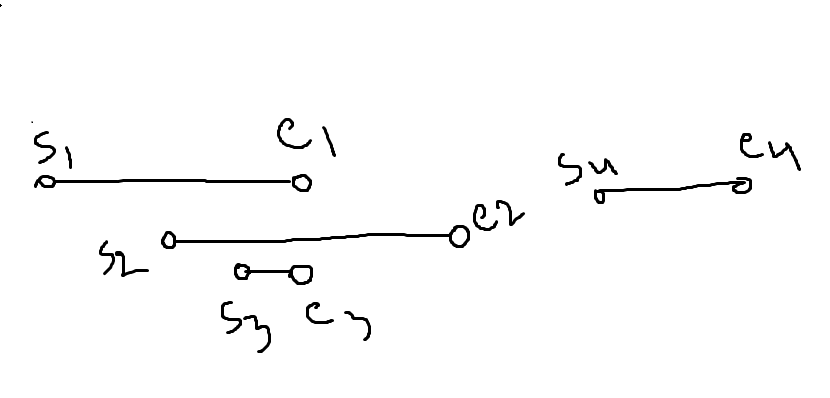 s1 e1
s4 e4
s2 e2
s3 e3